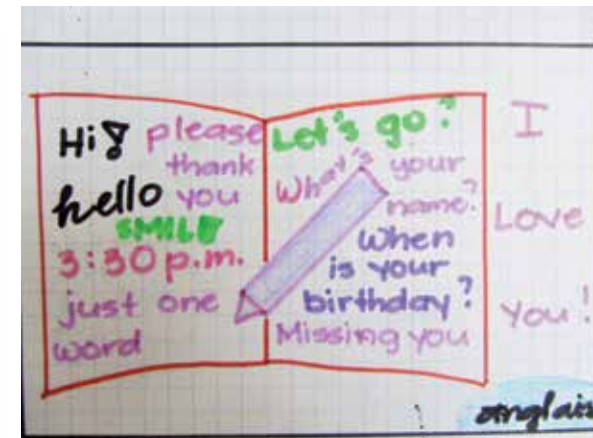 Hi! please
thank
hello you
SMILE
3:30 p.m.
just one
word
Let's go?
What's your
name?
When
is your
birthday?
Missing you
I
Love
You!
anglais